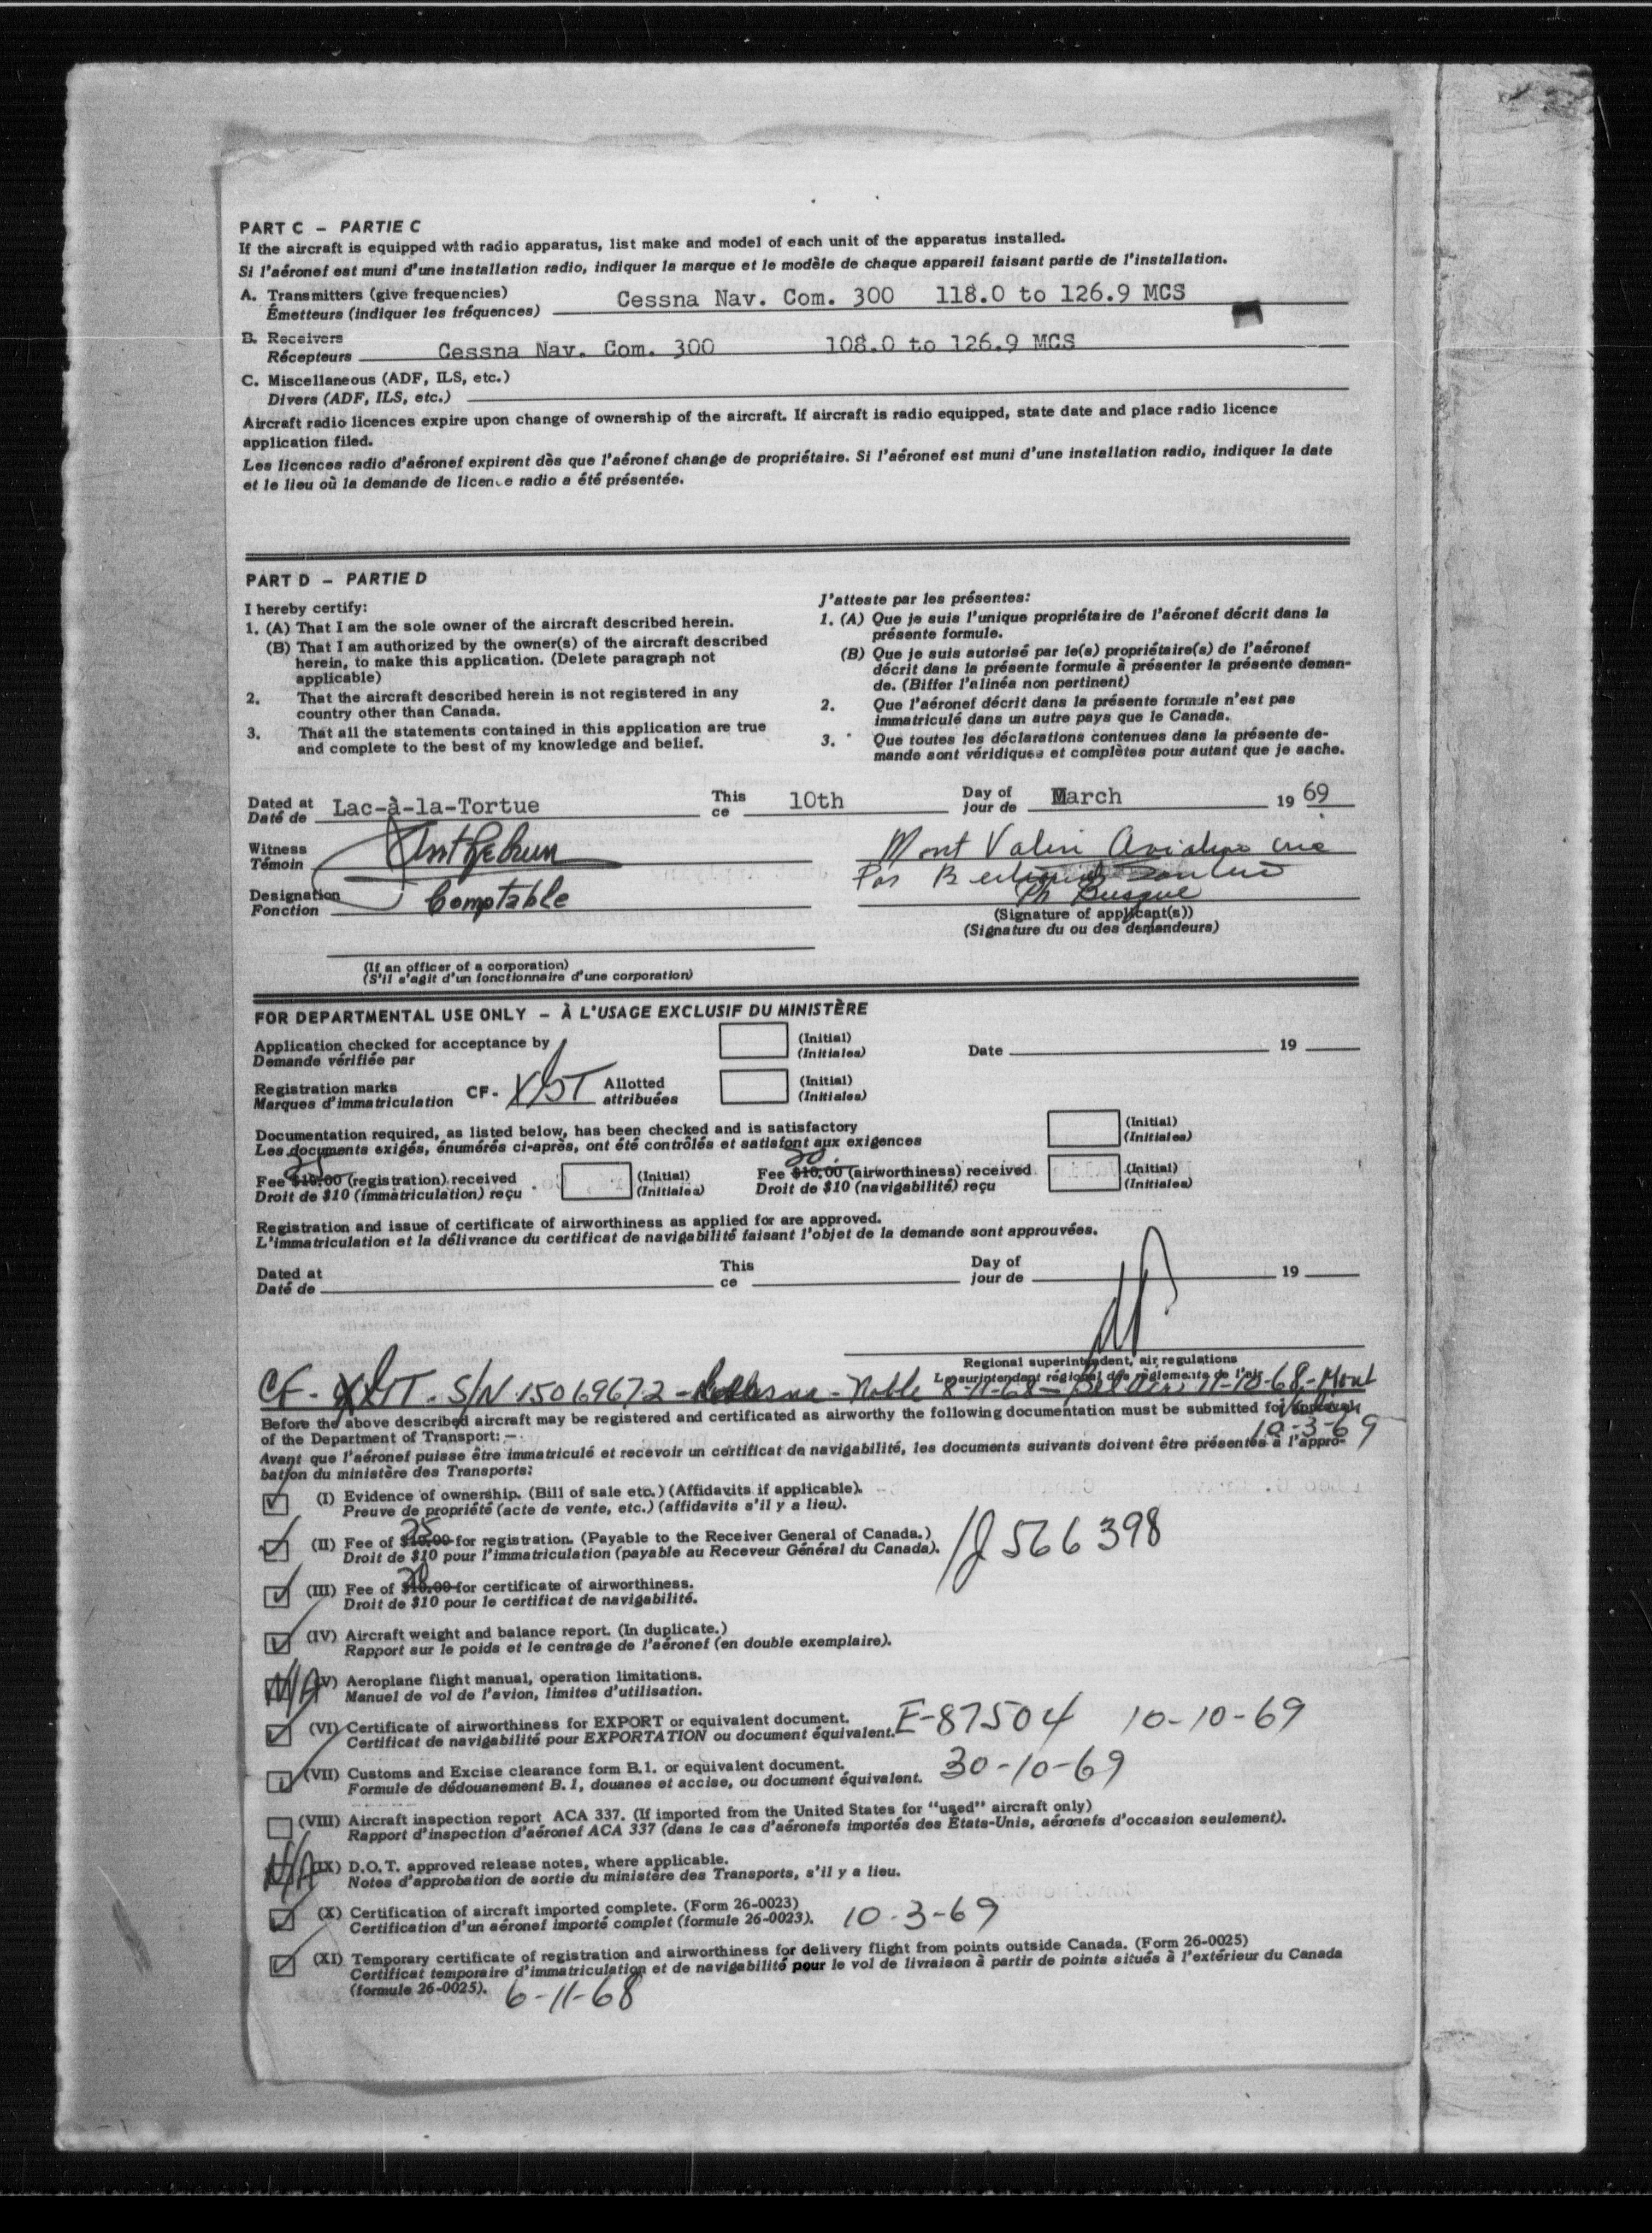 PART C – PARTIE C
If the aircraft is equipped with radio apparatus, list make and model of each unit of the apparatus installed.
Si l'aéronef est muni d'une installation radio, indiquer la marque et le modèle de chaque appareil faisant partie de l'installation.
A. Transmitters (give frequencies)
Émetteurs (indiquer les fréquences) Cessna Nav. Com. 300 118.0 to 126.9 MCS
B. Receivers
Récepteurs Cessna Nav. Com. 300 108.0 to 126.9 MCS
C. Miscellaneous (ADF, ILS, etc.)
Divers (ADF, ILS, etc.)
Aircraft radio licences expire upon change of ownership of the aircraft. If aircraft is radio equipped, state date and place radio licence
application filed.
Les licences radio d'aéronef expirent dès que l'aéronef change de propriétaire. Si l'aéronef est muni d'une installation radio, indiquer la date
et le lieu où la demande de licence radio a été présentée.
PART D – PARTIE D
I hereby certify:
1. (A) That I am the sole owner of the aircraft described herein.
(B) That I am authorized by the owner(s) of the aircraft described
herein, to make this application. (Delete paragraph not
applicable)
2. That the aircraft described herein is not registered in any
country other than Canada.
3. That all the statements contained in this application are true
and complete to the best of my knowledge and belief.
J'atteste par les présentes:
1. (A) Que je suis l'unique propriétaire de l'aéronef décrit dans la
présente formule.
(B) Que je suis autorisé par le(s) propriétaire(s) de l'aéronef
décrit dans la présente formule à présenter la présente deman-
de. (Biffer l'alinéa non pertinent)
2. Que l'aéronef décrit dans la présente formule n'est pas
immatriculé dans un autre pays que le Canada.
3. Que toutes les déclarations contenues dans la présente de-
mande sont véridiques et complètes pour autant que je sache.
Dated at This Day of
Daté de Lac-à-la-Tortue ce 10th jour de March 19 69
Witness
Témoin
Mont Valin Aviation
Par
Designation
Fonction Comptable
Ph Busque
(Signature of applicant(s))
(Signature du ou des demandeurs)
(If an officer of a corporation)
(S'il s'agit d'un fonctionnaire d'une corporation)
FOR DEPARTMENTAL USE ONLY – À L'USAGE EXCLUSIF DU MINISTÈRE
Application checked for acceptance by (Initial)
Demande vérifiée par (Initiales) Date 19
Registration marks CF- Allotted (Initial)
Marques d'immatriculation attribuées (Initiales)
Documentation required, as listed below, has been checked and is satisfactory (Initial)
Les documents exigés, énumérés ci-après, ont été contrôlés et satisfont aux exigences (Initiales)
25 20.
Fee $10.00 (registration) received (Initial) Fee $10.00 (airworthiness) received (Initial)
Droit de $10 (immatriculation) reçu (Initiales) Droit de $10 (navigabilité) reçu (Initiales)
Registration and issue of certificate of airworthiness as applied for are approved.
L'immatriculation et la délivrance du certificat de navigabilité faisant l'objet de la demande sont approuvées.
Dated at This Day of
Daté de ce jour de 19
Regional superintendent, air regulations
Le surintendant régional des règlements de l'air
CF- S/N 15069672 - Noble 8-11-68 - 11-10-68 - Mont
10-3-69
Before the above described aircraft may be registered and certificated as airworthy the following documentation must be submitted for approval
of the Department of Transport: –
Avant que l'aéronef puisse être immatriculé et recevoir un certificat de navigabilité, les documents suivants doivent être présentés à l'appro-
bation du ministère des Transports:
(I) Evidence of ownership. (Bill of sale etc.) (Affidavits if applicable).
Preuve de propriété (acte de vente, etc.) (affidavits s'il y a lieu).
25
(II) Fee of $10.00 for registration. (Payable to the Receiver General of Canada.)
Droit de $10 pour l'immatriculation (payable au Receveur Général du Canada). 566398
20
(III) Fee of $10.00 for certificate of airworthiness.
Droit de $10 pour le certificat de navigabilité.
(IV) Aircraft weight and balance report. (In duplicate.)
Rapport sur le poids et le centrage de l'aéronef (en double exemplaire).
N/A (V) Aeroplane flight manual, operation limitations.
Manuel de vol de l'avion, limites d'utilisation.
(VI) Certificate of airworthiness for EXPORT or equivalent document.
Certificat de navigabilité pour EXPORTATION ou document équivalent. E-87504 10-10-69
(VII) Customs and Excise clearance form B.1. or equivalent document.
Formule de dédouanement B.1, douanes et accise, ou document équivalent. 30-10-69
(VIII) Aircraft inspection report ACA 337. (If imported from the United States for "used" aircraft only)
Rapport d'inspection d'aéronef ACA 337 (dans le cas d'aéronefs importés des États-Unis, aéronefs d'occasion seulement).
N/A (IX) D.O.T. approved release notes, where applicable.
Notes d'approbation de sortie du ministère des Transports, s'il y a lieu.
(X) Certification of aircraft imported complete. (Form 26-0023)
Certification d'un aéronef importé complet (formule 26-0023). 10-3-69
(XI) Temporary certificate of registration and airworthiness for delivery flight from points outside Canada. (Form 26-0025)
Certificat temporaire d'immatriculation et de navigabilité pour le vol de livraison à partir de points situés à l'extérieur du Canada
(formule 26-0025). 6-11-68